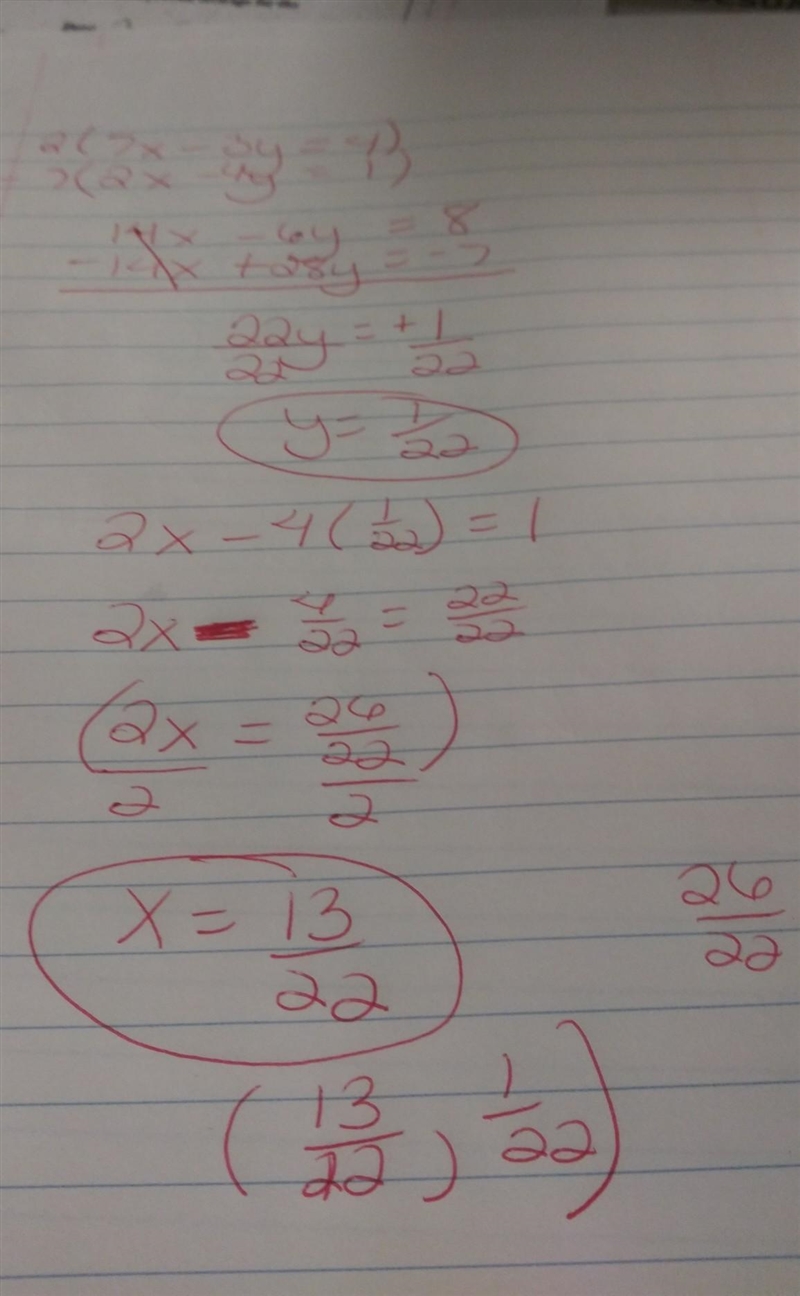 2(7x - 3y = 4)
7(2x - 4y = 1)
14x - 6y = 8
-14x + 28y = -7
22y = +1
22 22
y = 1/22
2x - 4(1/22) = 1
2x - 4/22 = 22/22
(2x = 26/22)
2 2
x = 13/22
26/22
(13/22, 1/22)